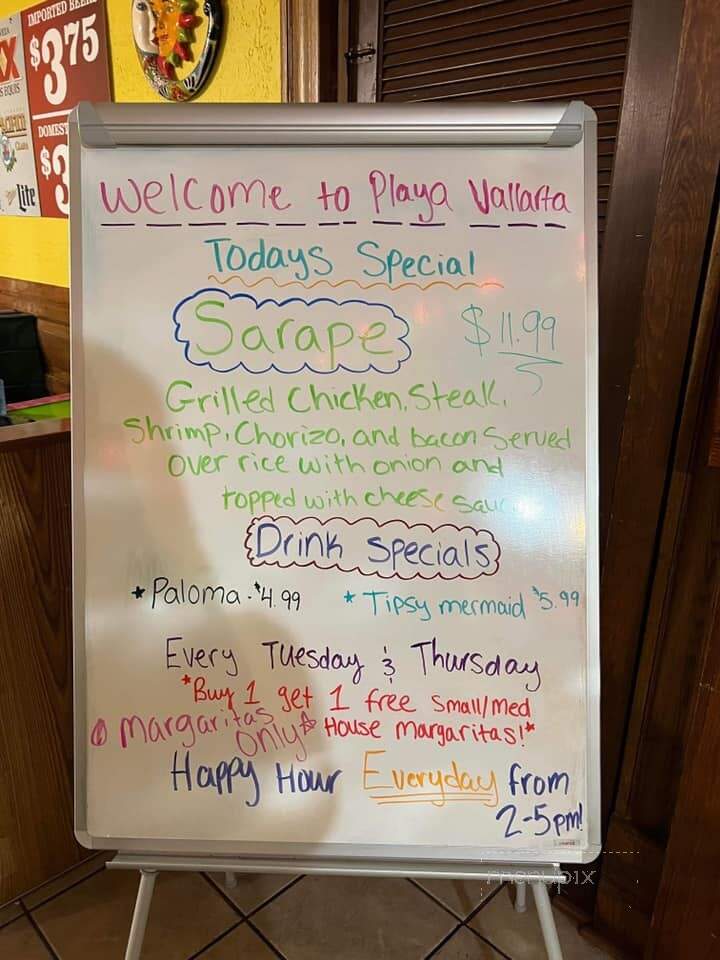 IMPORTED BEER
$3.75
XX
S EQUIS
DOMEST
$3
Lite
Welcome to Playa Vallarta
Todays Special
Sarape
$11.99
Grilled Chicken, Steak,
Shrimp, Chorizo, and bacon Served
over rice with onion and
topped with cheese sauc
Drink Specials
*Paloma - $4.99
* Tipsy mermaid $5.99
Every Tuesday & Thursday
*Buy 1 get 1 free small/med
House Margaritas!*
Margaritas
only*
Happy Hour Everyday from
2-5pm!
menupix